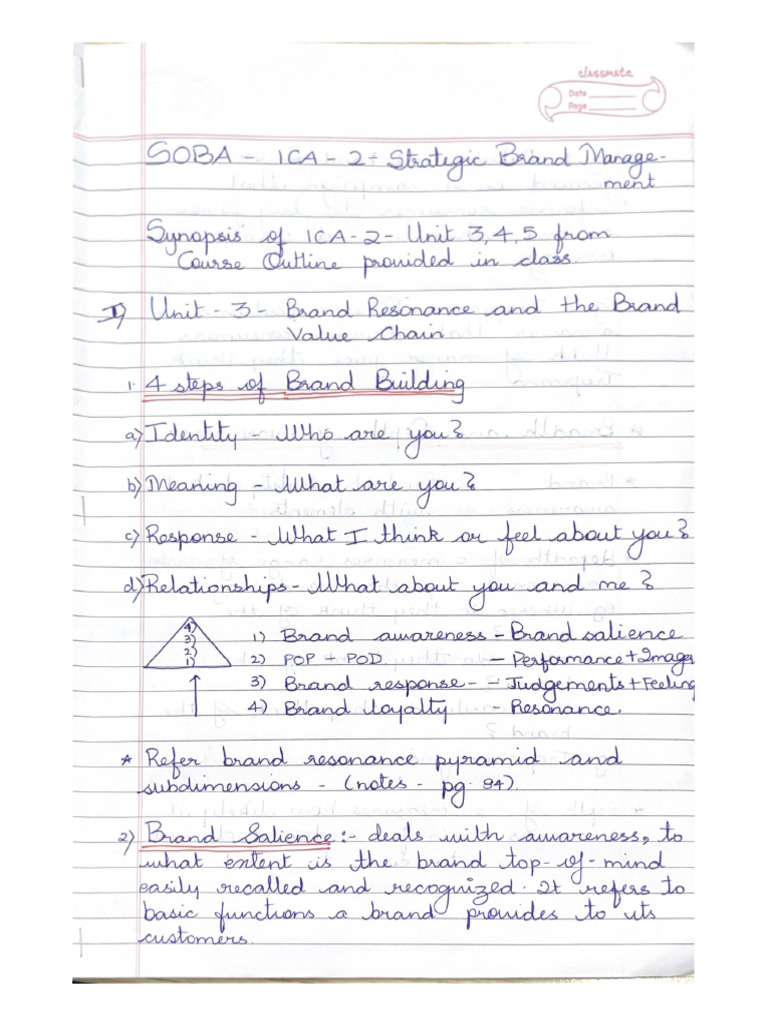 classmate
Date
Page
SOBA - ICA - 2 - Strategic Brand Manage-
ment
Synopsis of ICA-2 - Unit 3,4,5 from
Course Outline provided in class.
I) Unit - 3 - Brand Resonance and the Brand
Value Chain
1. 4 steps of Brand Building
a) Identity - Who are you?
b) Meaning - What are you?
c) Response - What I think or feel about you?
d) Relationships - What about you and me?
4)
3)
2)
1)
1) Brand awareness - Brand salience
2) POP + POD - Performance + Imager
3) Brand response - - Judgements + Feeling
4) Brand loyalty - Resonance.
* Refer brand resonance pyramid and
subdimensions - (notes - pg. 94).
2) Brand Salience :- deals with awareness, to
what extent is the brand top-of-mind
easily recalled and recognized. It refers to
basic functions a brand provides to its
customers.